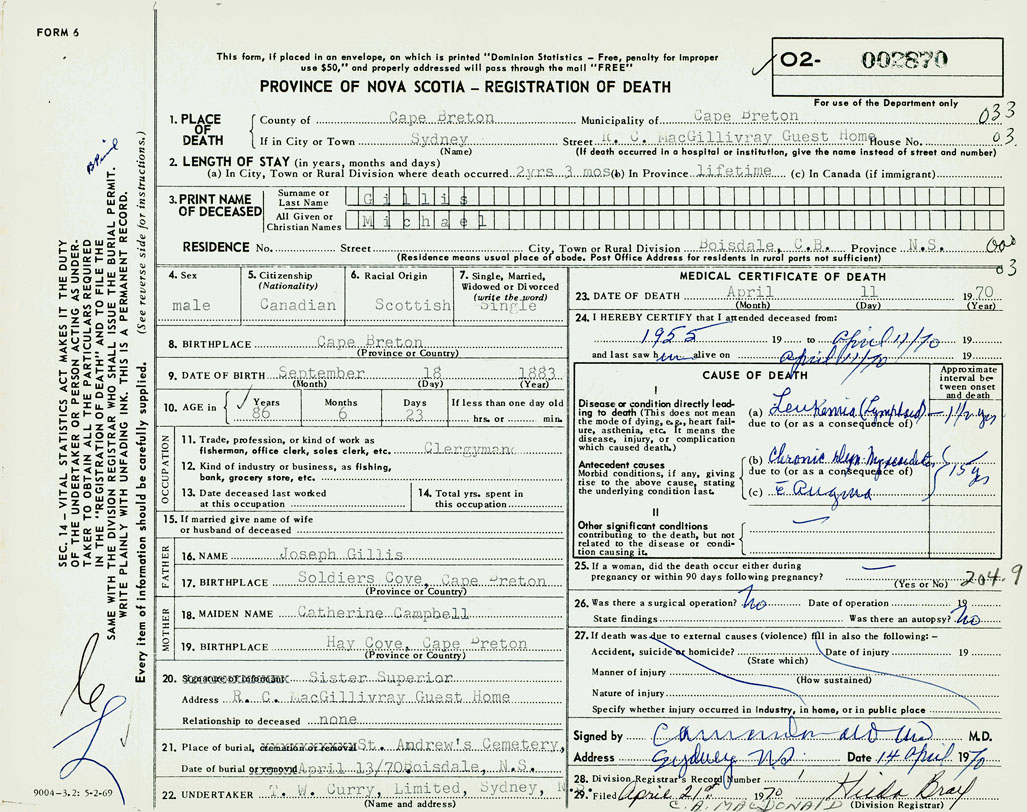 FORM 6
This form, if placed in an envelope, on which is printed "Dominion Statistics - Free, penalty for improper
use $50," and properly addressed will pass through the mail "FREE"
02- 002870
PROVINCE OF NOVA SCOTIA - REGISTRATION OF DEATH
For use of the Department only
1. PLACE OF DEATH
County of Cape Breton Municipality of Cape Breton 033
If in City or Town Sydney Street R. C. MacGillivray Guest Home House No. 03
(Name) (If death occurred in a hospital or institution, give the name instead of street and number)
2. LENGTH OF STAY (in years, months and days)
(a) In City, Town or Rural Division where death occurred 2yrs 3 mos (b) In Province lifetime (c) In Canada (if immigrant)
3. PRINT NAME OF DECEASED
Surname or Last Name Gillis
All Given or Christian Names Michael
RESIDENCE No. Street City, Town or Rural Division Boisdale, C.B. Province N.S.
(Residence means usual place of abode. Post Office Address for residents in rural parts not sufficient)
03
4. Sex
male
5. Citizenship
(Nationality)
Canadian
6. Racial Origin
Scottish
7. Single, Married,
Widowed or Divorced
(write the word)
Single
8. BIRTHPLACE Cape Breton
(Province or Country)
9. DATE OF BIRTH September 18 1883
(Month) (Day) (Year)
10. AGE in Years Months Days If less than one day old
86 6 23 hrs. or min.
OCCUPATION
11. Trade, profession, or kind of work as
fisherman, office clerk, sales clerk, etc. Clergyman
12. Kind of industry or business, as fishing,
bank, grocery store, etc.
13. Date deceased last worked
at this occupation
14. Total yrs. spent in
this occupation
15. If married give name of wife
or husband of deceased
FATHER
16. NAME Joseph Gillis
17. BIRTHPLACE Soldiers Cove, Cape Breton
(Province or Country)
MOTHER
18. MAIDEN NAME Catherine Campbell
19. BIRTHPLACE Hay Cove, Cape Breton
(Province or Country)
20. Signature of informant Sister Superior
Address R. C. MacGillivray Guest Home
Relationship to deceased none
21. Place of burial, cremation or removal St. Andrew's Cemetery,
Date of burial or removal April 13/70 Boisdale, N.S.
22. UNDERTAKER T. W. Curry, Limited, Sydney, N.S.
(Name and address)
MEDICAL CERTIFICATE OF DEATH
23. DATE OF DEATH April 11 1970
(Month) (Day) (Year)
24. I HEREBY CERTIFY that I attended deceased from:
1955 19 to April 11/70 19
and last saw him alive on April 11/70 19
CAUSE OF DEATH
Approximate
interval be-
tween onset
and death
I
Disease or condition directly lead-
ing to death (This does not mean
the mode of dying, e.g., heart fail-
ure, asthenia, etc. It means the
disease, injury, or complication
which caused death.)
(a) Leukemia (Lymphoid) - 1½ yrs
due to (or as a consequence of)
Antecedent causes
Morbid conditions, if any, giving
rise to the above cause, stating
the underlying condition last.
(b) Chronic Myocarditis
due to (or as a consequence of)
(c) c̄ Angina
15 yrs
II
Other significant conditions
contributing to the death, but not
related to the disease or condi-
tion causing it.
25. If a woman, did the death occur either during
pregnancy or within 90 days following pregnancy?
(Yes or No) 204.9
26. Was there a surgical operation? No Date of operation 19
State findings Was there an autopsy? No
27. If death was due to external causes (violence) fill in also the following: -
Accident, suicide or homicide? Date of injury 19
(State which)
Manner of injury
(How sustained)
Nature of injury
Specify whether injury occurred in Industry, in home, or in public place
Signed by M.D.
Address Sydney NS Date 14 April 1970
28. Division Registrar's Record Number
29. Filed April 21st 1970 Hilda Bray
C. A. MACDONALD (Division Registrar)
SEC. 14 - VITAL STATISTICS ACT MAKES IT THE DUTY
OF THE UNDERTAKER OR PERSON ACTING AS UNDER-
TAKER TO OBTAIN ALL THE PARTICULARS REQUIRED
IN THE "REGISTRATION OF DEATH" AND TO FILE THE
SAME WITH THE DIVISION REGISTRAR WHO SHALL ISSUE THE BURIAL PERMIT.
WRITE PLAINLY WITH UNFADING INK. THIS IS A PERMANENT RECORD.
Every item of information should be carefully supplied. (See reverse side for instructions.)
9004-3.2: 5-2-69